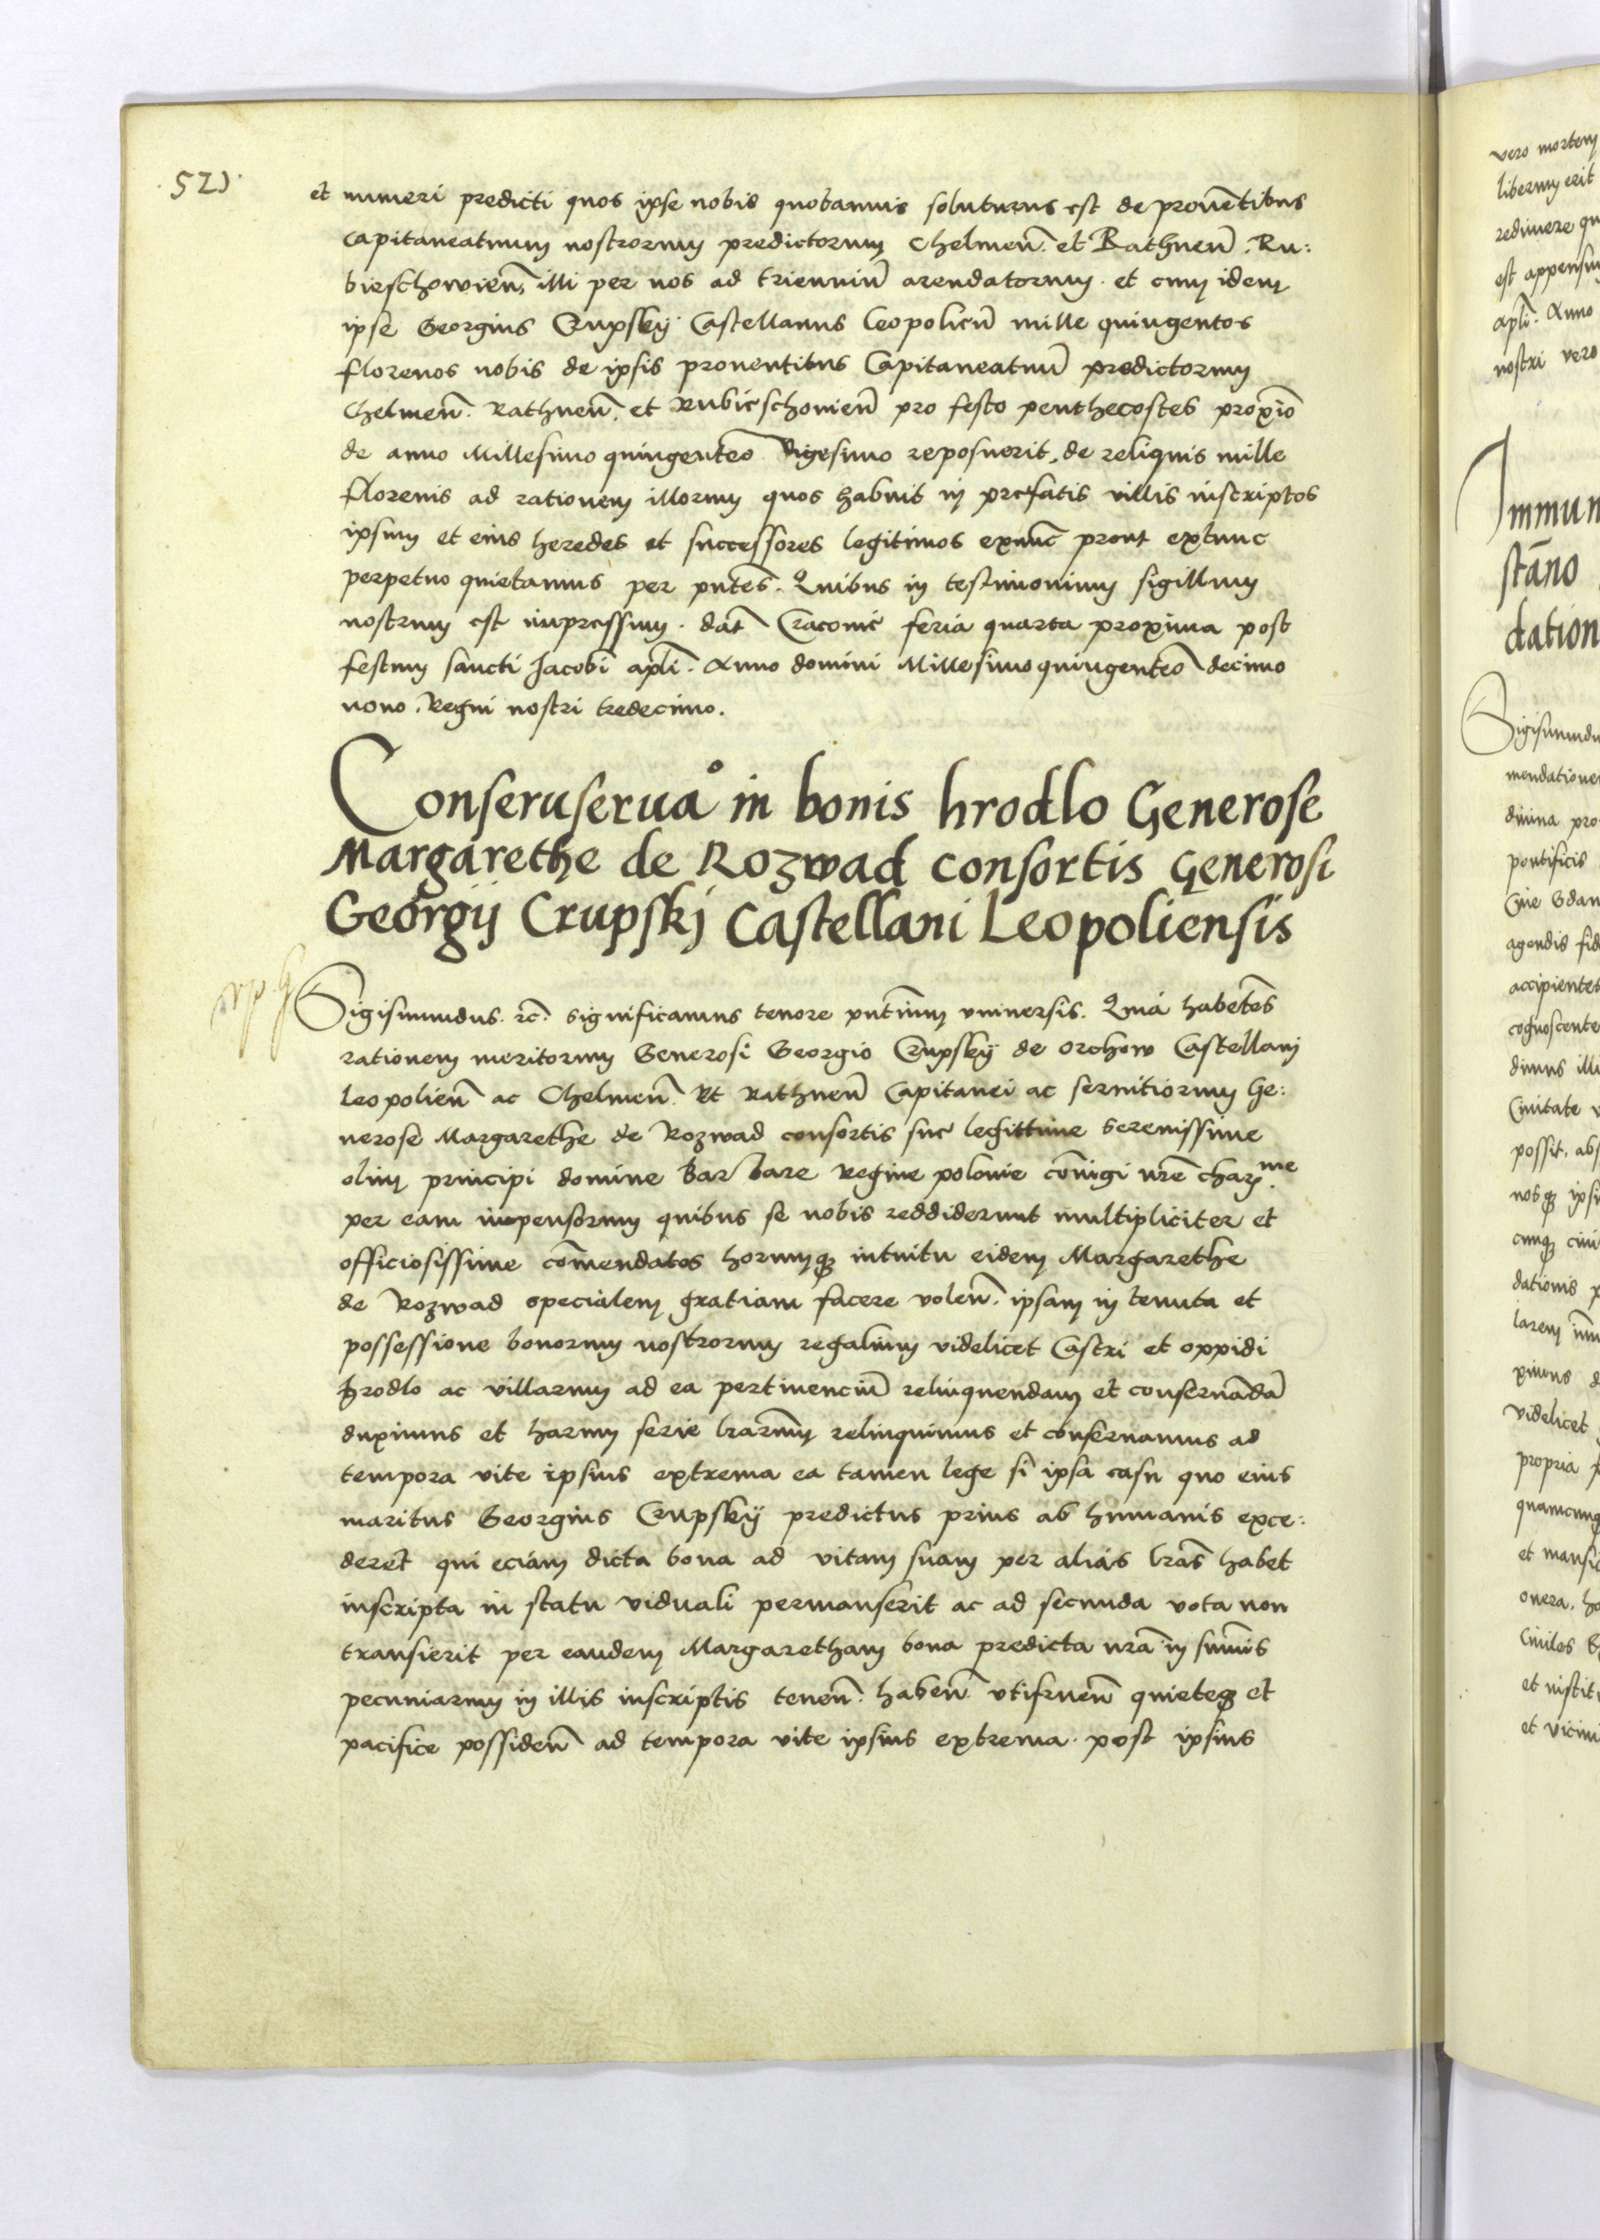 .521.
et numeri predicti quos ipse nobis quotannis soluturus est de prouẽtibus
capitaneatuum nostrorum predictorum Chelmeñ. et Rathneñ. Ru:
bieschowieñ. illi per nos ad trienniũ arendatorum. et cum idem
ipse Georgius Crupskÿ Castellanus Leopolieñ mille quingentos
florenos nobis de ipsis prouentibus Capitaneatuũ predictorum
Chelmeñ. Rathneñ. et Rubieschouieñ pro festo penthecostes proximo
de anno Millesimo quingenteõ vigesimo reposuerit, de reliquis mille
florenis ad rationem illorum quos habuit in prefatis villis inscriptos
ipsum et eius heredes et successores legitimos exnũc prout extunc
perpetuo quietamus per pñtes. Quibus in testimonium sigillum
nostrum est impressum. dat̃ Cracouie feria quarta proxima post
festum sancti Jacobi apl̃i. Anno domini Millesimo quingenteõ decimo
nono. Regni nostri tredecimo.
Conseruseruaº in bonis hrodlo Generose
Margarethe de Rozwad consortis Generosi
Georgij Crupskj Castellani Leopoliensis
Sigismundus. rc̃. significamus tenore pñtium vniuersis. Quia habẽtes
rationem meritorum Generosi Georgio Crupskÿ de orchow Castellani
Leopolieñ ac Chelmeñ. Et Rathneñ Capitanei ac seruitiorum Ge:
nerose Margarethe de Rozwad consortis sue legittime serenissime
olim principi domine Barbare Regine polonie coñiugi nrẽ char.me
per eam impensorum quibus se nobis reddiderunt multipliciter et
officiosissime com̃endatos horumqꝫ intuitu eidem Margarethe
de Rozwad specialem gratiam facere voleñ. ipsam in tenuta et
possessione bonorum nostrorum regalium videlicet Castri et oppidi
hrodlo ac villarum ad ea pertinenciũ relinquendam et conseruãdã
duximus et harum serie lrãrum relinquimus et conseruamus ad
tempora vite ipsius extrema ea tamen lege si ipsa casu quo eius
maritus Georgius Crupskÿ predictus prius ab humanis exce:
deret qui eciam dicta bona ad vitam suam per alias lrãs habet
inscripta in statu viduali permanserit ac ad secunda vota non
transierit per eandem Margaretham bona predicta nrã in sum̃is
pecuniarum in illis inscriptis teneñ. habeñ vtifrueñ quieteqꝫ et
pacifice possideñ ad tempora vite ipsius extrema. post ipsius
vero mortem
liberum erit
redimere
est
apl̃i. Anno
nostri vero
Immun
stãno
dation
Sigismundu
mendatione
diuina pro
pontificis
agendis fid
accipientes
cognoscente
dimus illi
Ciuitate
possit. abs
nobqꝫ ipsi
dationis
videlicet
propria
et
onera. ha
et
et vicini